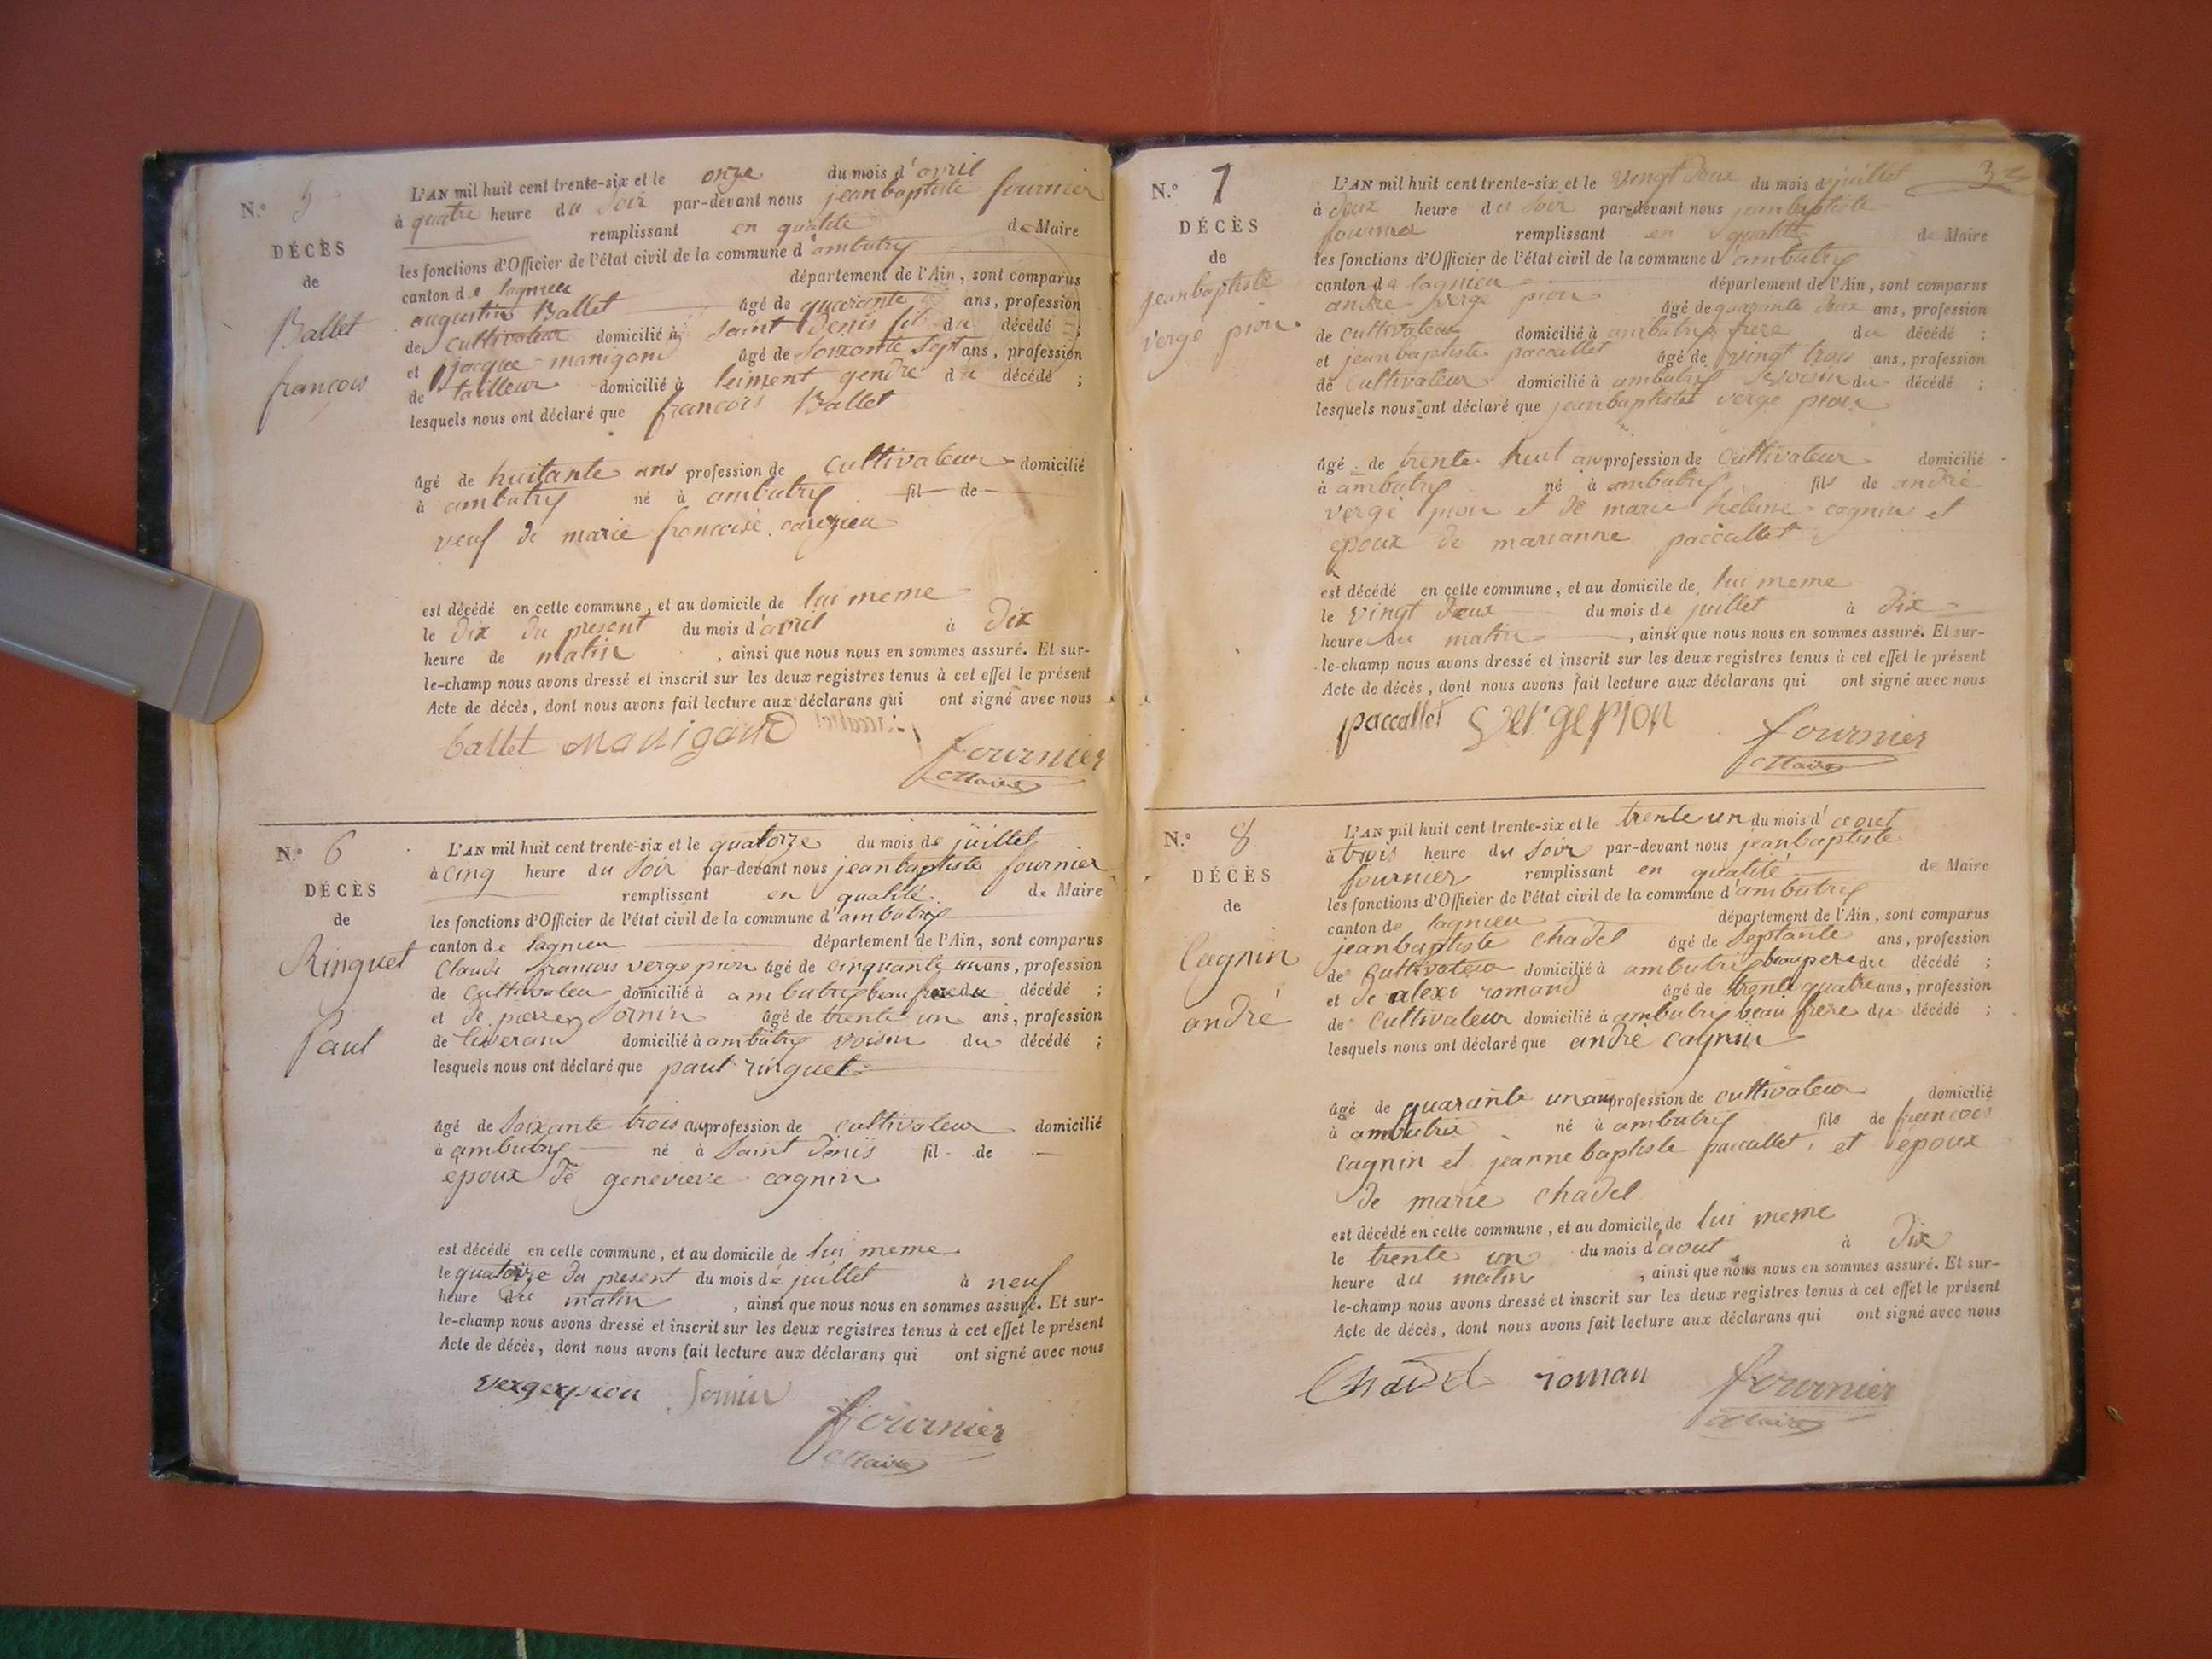 N.º 5
DÉCÈS
de
Ballet
francois
L'AN mil huit cent trente-six et le onze du mois d'avril
à quatre heure du soir par-devant nous jeanbaptiste fournier
remplissant en qualité de Maire
les fonctions d'Officier de l'état civil de la commune d'ambutry
canton de lagnieu département de l'Ain, sont comparus
augustin Ballet âgé de quarante ans, profession
de cultivateur domicilié à saint Denis fil du décédé ;
et jacque manigand âgé de soixante sept ans, profession
de tailleur domicilié à leiment gendre du décédé ;
lesquels nous ont déclaré que francois Ballet
âgé de huitante ans profession de cultivateur domicilié
à ambutry né à ambutry fil de
veuf de marie francoise
est décédé en cette commune, et au domicile de lui meme
le dix du present du mois d'avril à dix
heure de matin, ainsi que nous nous en sommes assuré. Et sur-
le-champ nous avons dressé et inscrit sur les deux registres tenus à cet effet le présent
Acte de décès, dont nous avons fait lecture aux déclarans qui ont signé avec nous
ballet Manigand
fournier
Maire
N.º 6
DÉCÈS
de
Ringuet
Paul
L'AN mil huit cent trente-six et le quatorze du mois de juillet
à cinq heure du soir par-devant nous jeanbaptiste fournier
remplissant en qualité de Maire
les fonctions d'Officier de l'état civil de la commune d'ambutry
canton de lagnieu département de l'Ain, sont comparus
Claude francois verge pion âgé de cinquante un ans, profession
de cultivateur domicilié à ambutry beau frere du décédé ;
et de pierre Sornin âgé de trente un ans, profession
de tisserand domicilié à ambutry voisin du décédé ;
lesquels nous ont déclaré que paul ringuet
âgé de soixante trois ans profession de cultivateur domicilié
à ambutry né à Saint Denis fil de
epoux de genevieve cagnin
est décédé en cette commune, et au domicile de lui meme
le quatorze du present du mois de juillet à neuf
heure du matin, ainsi que nous nous en sommes assuré. Et sur-
le-champ nous avons dressé et inscrit sur les deux registres tenus à cet effet le présent
Acte de décès, dont nous avons fait lecture aux déclarans qui ont signé avec nous
vergepion Sornin
fournier
Maire
32
N.º 7
DÉCÈS
de
jeanbaptiste
verge pion
L'AN mil huit cent trente-six et le vingt deux du mois de juillet
à deux heure du soir par-devant nous jeanbaptiste
fournier remplissant en qualité de Maire
les fonctions d'Officier de l'état civil de la commune d'ambutry
canton de lagnieu département de l'Ain, sont comparus
andré verge pion âgé de quarante deux ans, profession
de cultivateur domicilié à ambutry frere du décédé ;
et jeanbaptiste paccallet âgé de vingt trois ans, profession
de cultivateur domicilié à ambutry voisin du décédé ;
lesquels nous ont déclaré que jeanbaptiste verge pion
âgé de trente huit ans profession de cultivateur domicilié
à ambutry né à ambutry fils de andré
verge pion et de marie helene cagnin et
epoux de marianne paccallet
est décédé en cette commune, et au domicile de lui meme
le vingt deux du mois de juillet à dix
heure du matin, ainsi que nous nous en sommes assuré. Et sur-
le-champ nous avons dressé et inscrit sur les deux registres tenus à cet effet le présent
Acte de décès, dont nous avons fait lecture aux déclarans qui ont signé avec nous
paccallet vergepion
fournier
Maire
N.º 8
DÉCÈS
de
Cagnin
andré
L'AN mil huit cent trente-six et le trente un du mois d'aout
à trois heure du soir par-devant nous jeanbaptiste
fournier remplissant en qualité de Maire
les fonctions d'Officier de l'état civil de la commune d'ambutry
canton de lagnieu département de l'Ain, sont comparus
jeanbaptiste Chadel âgé de septante ans, profession
de cultivateur domicilié à ambutry beau pere du décédé ;
et de alexi romand âgé de trente quatre ans, profession
de cultivateur domicilié à ambutry beau frere du décédé ;
lesquels nous ont déclaré que andré cagnin
âgé de quarante un ans profession de cultivateur domicilié
à ambutrix né à ambutry fils de francois
Cagnin et jeanne baptiste paccallet, et époux
de marie Chadel
est décédé en cette commune, et au domicile de lui meme
le trente un du mois d'aout à dix
heure du matin, ainsi que nous nous en sommes assuré. Et sur-
le-champ nous avons dressé et inscrit sur les deux registres tenus à cet effet le présent
Acte de décès, dont nous avons fait lecture aux déclarans qui ont signé avec nous
Chadel roman fournier
Maire